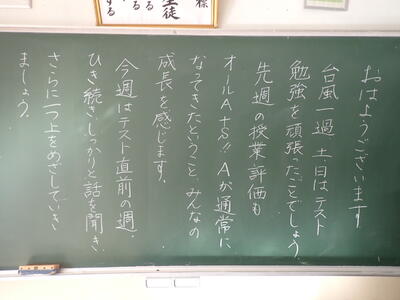 おはようございます
台風一過 土、日はテスト
勉強を頑張ったことでしょう。
先週の授業評価も
オールA+S!! Aが通常に
なってきたということ、みんなの
成長を感じます。
今週はテスト直前の週。
ひき続き、しっかりと話を聞き、
さらに一つ上をめざしていき
ましょう。
標
る
生徒
する